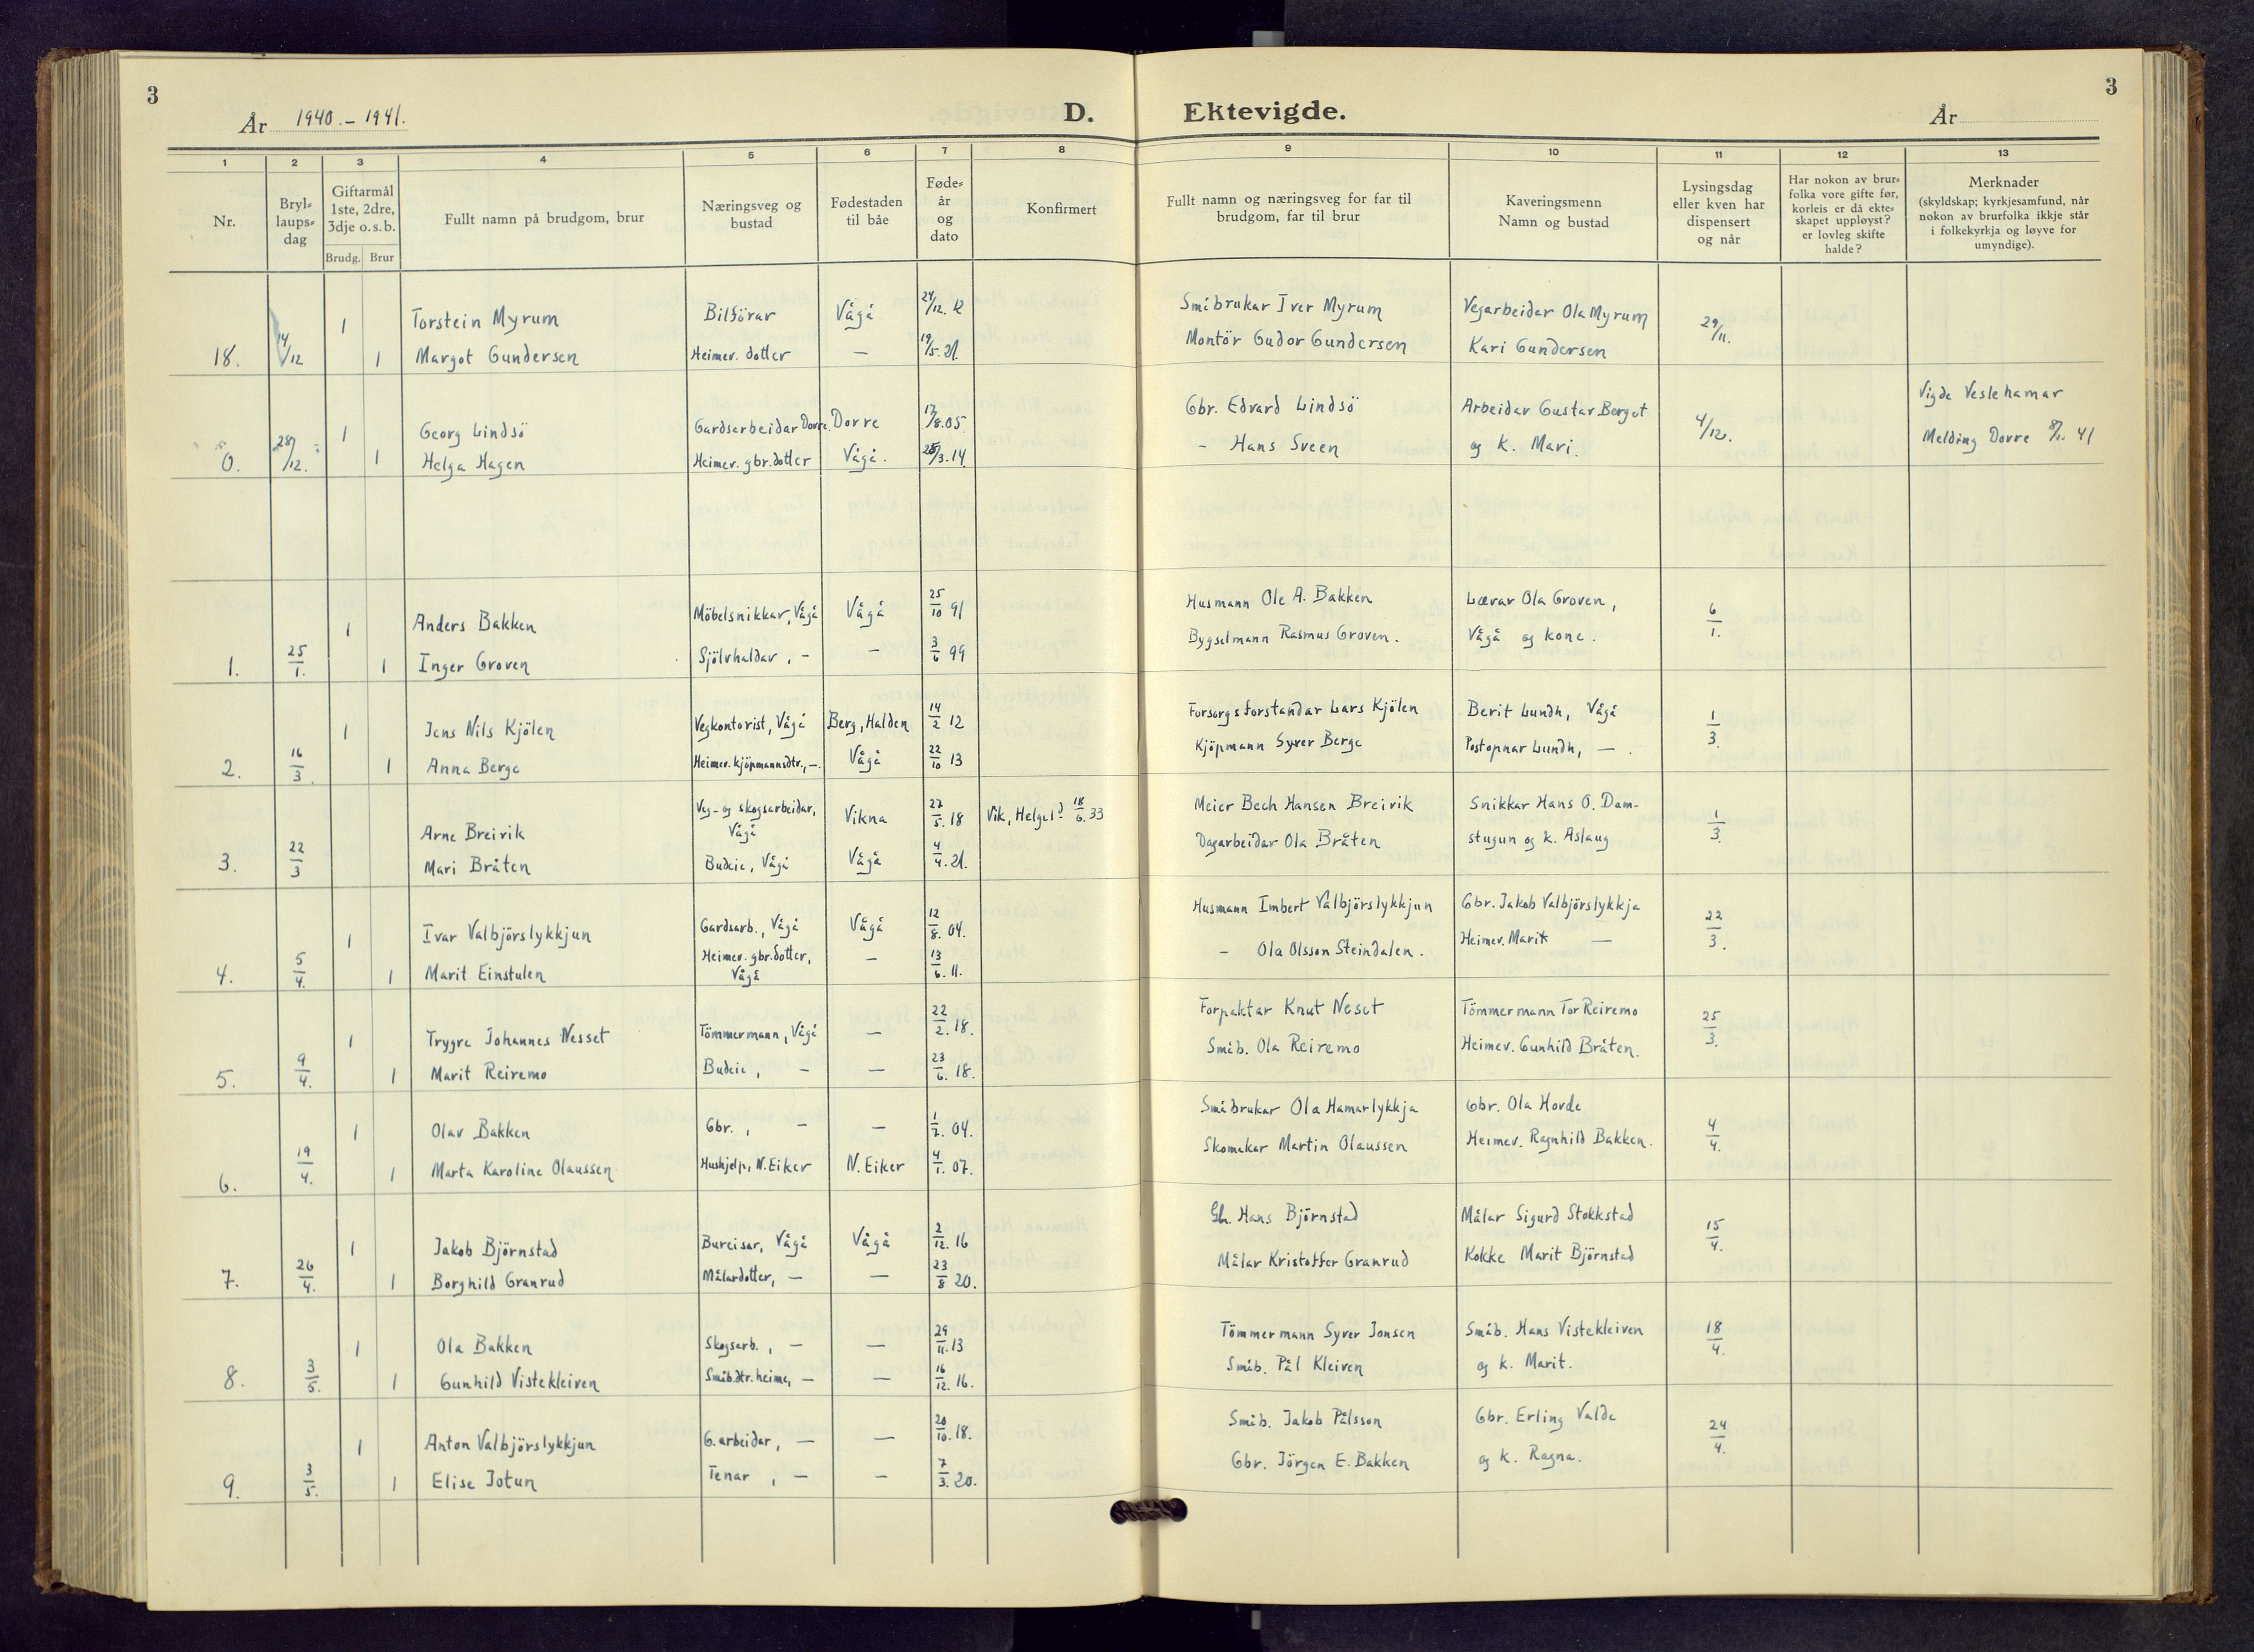 3
År 1940.-1941.
D.
Ektevigde.
År
3
1 2 3 4 5 6 7 8 9 10 11 12 13
Nr.
Bryl=
laups=
dag
Giftarmål
1ste, 2dre,
3dje o.s.b.
Brudg. Brur
Fullt namn på brudgom, brur
Næringsveg og
bustad
Fødestaden
til båe
Føde=
år
og
dato
Konfirmert
Fullt namn og næringsveg for far til
brudgom, far til brur
Kaveringsmenn
Namn og bustad
Lysingsdag
eller kven har
dispensert
og når
Har nokon av brur=
folka vore gifte før,
korleis er då ekte=
skapet uppløyst?
er lovleg skifte
halde?
Merknader
(skyldskap; kyrkjesamfund, når
nokon av brurfolka ikkje står
i folkekyrkja og løyve for
umyndige).
1 Torstein Myrum Bilförar Vågå 24/12. 12 Småbrukar Iver Myrum Vegarbeidar Ola Myrum 29/11.
18. 14/12 1 Margot Gundersen Heimev. dotter — 19/5. 21. Montör Gudor Gundersen Kari Gundersen
1 Georg Lindsö Gardsarbeidar Dovre. Dovre 17/8.05 Gbr. Edvard Lindsö Arbeidar Gustav Berget 4/12. Vigde Veslehamar
0. 28/12. 1 Helga Hagen Heimev. gbr.dotter Vågå. 25/3.14. - Hans Sveen og k. Mari. Melding Dovre 8/1. 41
1 Anders Bakken Möbelsnikkar, Vågå Vågå 25/10 91 Husmann Ole A. Bakken Lærar Ola Groven, 6/1.
1. 25/1. 1 Inger Groven Sjölvhaldar, - - 3/6 99 Bygselmann Rasmus Groven. Vågå og kone.
1 Jens Nils Kjölen Vegkontorist, Vågå Berg, Halden 14/2 12 Forsorgsforstandar Lars Kjölen Berit Lundh, Vågå 1/3.
2. 16/3. 1 Anna Berge Heimev. kjöpmannsdtr., -. Vågå 22/10 13 Kjöpmann Syver Berge Postopnar Lundh, —.
1 Arne Breivik Veg- og skogsarbeidar, Vikna 27/5. 18 Vik, Helgeld 18/6. 33 Meier Bech Hansen Breivik Snikkar Hans O. Dam- 1/3.
Vågå
3. 22/3 1 Mari Bråten Budeie, Vågå Vågå 4/4. 21. Dagarbeidar Ola Bråten stugun og k. Aslaug
1 Ivar Valbjörslykkjun Gardsarb., Vågå Vågå 12/8. 04. Husmann Imbert Valbjörslykkjun Gbr. Jakob Valbjörslykkja 22/3.
4. 5/4. 1 Marit Einstulen Heimev. gbr.dotter, — 13/6. 11. - Ola Olsson Steindalen. Heimev. Marit —
Vågå
1 Trygve Johannes Nesset Tömmermann, Vågå — 22/2. 18. Forpaktar Knut Neset Tömmermann Tor Reiremo 25/3.
5. 9/4. 1 Marit Reiremo Budeie, - — 23/6. 18. Småb. Ola Reiremo Heimev. Gunhild Bråten.
1 Olav Bakken Gbr., - — 1/2. 04. Småbrukar Ola Hamarlykkja Gbr. Ola Horde 4/4.
6. 19/4. 1 Marta Karoline Olaussen Hushjelp, N. Eiker N. Eiker 4/1. 07. Skomakar Martin Olaussen Heimev. Ragnhild Bakken.
1 Jakob Björnstad Bureisar, Vågå Vågå 2/12. 16 Gbr. Hans Björnstad Målar Sigurd Stokkstad 15/4.
7. 26/4. 1 Borghild Granrud Målardotter, — — 23/8 20. Målar Kristoffer Granrud Kokke Marit Björnstad
1 Ola Bakken Skogsarb., — — 29/11. 13 Tömmermann Syver Jonsen Småb. Hans Vistekleiven 18/4.
8. 3/5. 1 Gunhild Vistekleiven Småb.dtr. heime, — — 16/12. 16. Småb. Pål Kleiven og k. Marit.
1 Anton Valbjörslykkjun G.arbeidar, — — 20/10. 18. Småb. Jakob Pålsson Gbr. Erling Valde 24/4.
9. 3/5. 1 Elise Jotun Tenar, — — 7/3. 20. Gbr. Jörgen E. Bakken og k. Ragna.